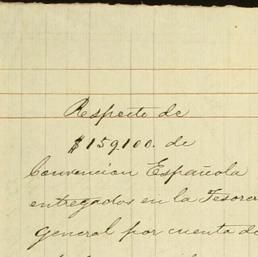 Respecto de
$159.100. de
Convencion Española
entregados en la Tesore
general por cuenta de